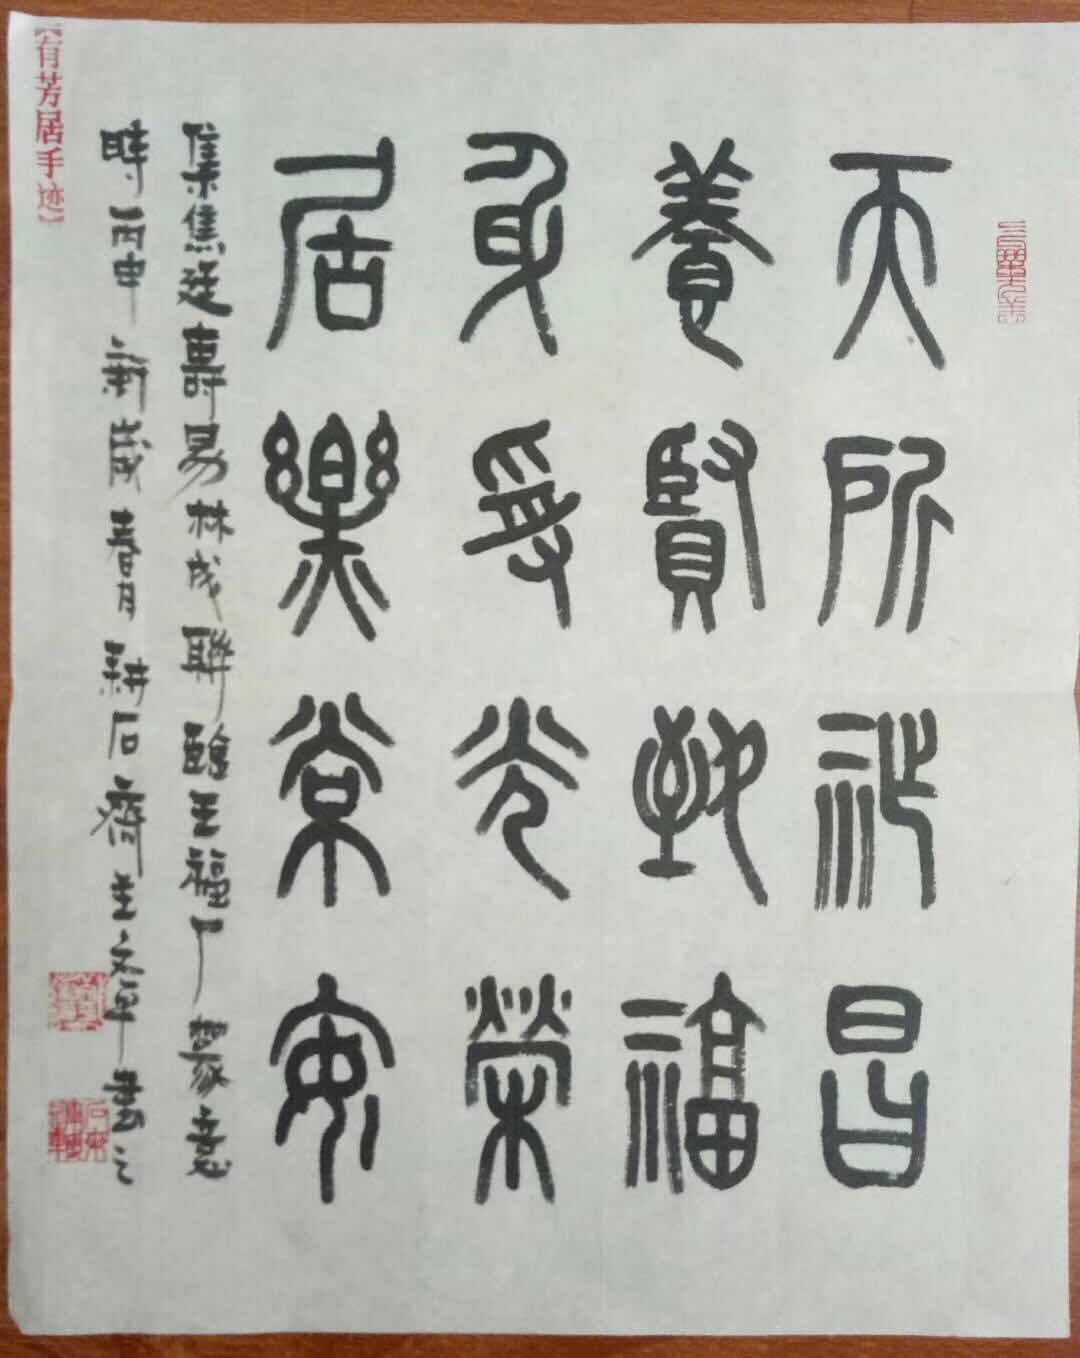 天所祚昌
養賢致福
身受光榮
居樂常安
集焦延壽易林成聯臨王福厂篆意
時丙申新歲春月耕石齋主文軍書之
【有芳居手迹】